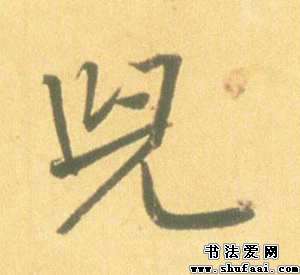 兕
书法爱网
www.shufaai.com